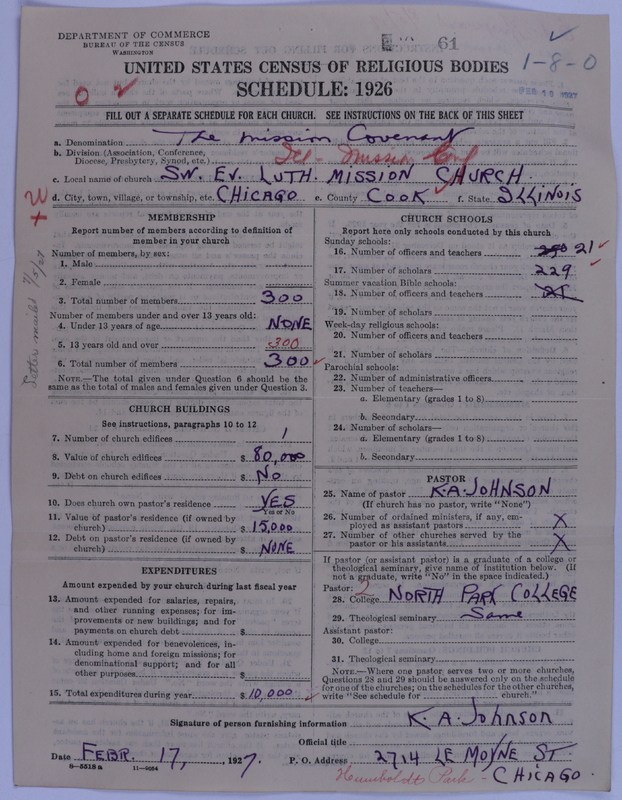 DEPARTMENT OF COMMERCE
BUREAU OF THE CENSUS
WASHINGTON
61
1-8-0
UNITED STATES CENSUS OF RELIGIOUS BODIES
SCHEDULE: 1926
FILL OUT A SEPARATE SCHEDULE FOR EACH CHURCH. SEE INSTRUCTIONS ON THE BACK OF THIS SHEET
a. Denomination The Mission Covenant
b. Division (Association, Conference,
Diocese, Presbytery, Synod, etc.) Ill- Mission Conf
c. Local name of church SW. EV. LUTH. MISSION CHURCH.
d. City, town, village, or township, etc. CHICAGO e. County COOK f. State ILLINOIS
MEMBERSHIP
Report number of members according to definition of
member in your church
Number of members, by sex:
1. Male
2. Female
3. Total number of members 300
Number of members under and over 13 years old:
4. Under 13 years of age NONE
5. 13 years old and over 300
6. Total number of members 300
NOTE.—The total given under Question 6 should be the
same as the total of males and females given under Question 3.
CHURCH BUILDINGS
See instructions, paragraphs 10 to 12
7. Number of church edifices 1
8. Value of church edifices $ 80,000
9. Debt on church edifices $ No
10. Does church own pastor's residence YES
Yes or No
11. Value of pastor's residence (if owned by
church) $ 15,000
12. Debt on pastor's residence (if owned by
church) $ NONE
EXPENDITURES
Amount expended by your church during last fiscal year
13. Amount expended for salaries, repairs,
and other running expenses; for im-
provements or new buildings; and for
payments on church debt $
14. Amount expended for benevolences, in-
cluding home and foreign missions; for
denominational support; and for all
other purposes $
15. Total expenditures during year $ 10,000
CHURCH SCHOOLS
Report here only schools conducted by this church
Sunday schools:
16. Number of officers and teachers 21
17. Number of scholars 229
Summer vacation Bible schools:
18. Number of officers and teachers 21
19. Number of scholars
Week-day religious schools:
20. Number of officers and teachers
21. Number of scholars
Parochial schools:
22. Number of administrative officers
23. Number of teachers—
a. Elementary (grades 1 to 8)
b. Secondary
24. Number of scholars—
a. Elementary (grades 1 to 8)
b. Secondary
PASTOR
25. Name of pastor K.A. JOHNSON
(If church has no pastor, write "None")
26. Number of ordained ministers, if any, em-
ployed as assistant pastors X
27. Number of other churches served by the
pastor or his assistants X
If pastor (or assistant pastor) is a graduate of a college or
theological seminary, give name of institution below. (If
not a graduate, write "No" in the space indicated.)
Pastor: 2
28. College NORTH PARK COLLEGE
29. Theological seminary Same
Assistant pastor:
30. College
31. Theological seminary
NOTE.—Where one pastor serves two or more churches,
Questions 28 and 29 should be answered only on the schedule
for one of the churches; on the schedules for the other churches,
write "See schedule for church."
Signature of person furnishing information K. A. Johnson
Official title
Date FEBR. 17, 1927. P. O. Address 2714 LE MOYNE ST.
8-5518a 11-9054
Humboldt Park - CHICAGO.